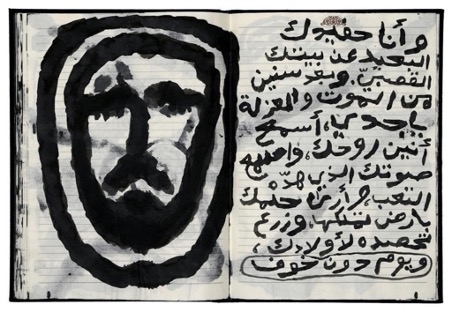 و أنا حفيدك
البعيد عن بيتك
القصبيّ، وبعد سنين
من الموت والعزلة
يا جدي، أسمع
أنين روحك،
صوتك الذي هدّه
التعب، وأرى حلمك
بأرض تملكها، وزرع
تحصده لأولادك،
ويوم دون خوف